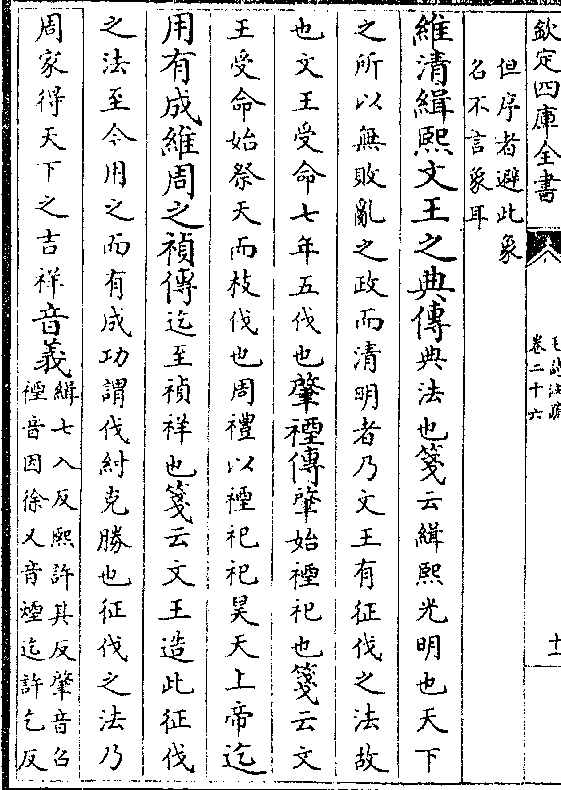 欽定四庫全書
毛詩注疏
卷二十六
十
但序者避此象
名不言象耳
維清緝熙文王之典傳典法也箋云緝熙光明也天下
之所以無敗亂之政而清明者乃文王有征伐之法故
也文王受命七年五伐也肇禋傳肇始禋祀也箋云文
王受命始祭天而枝伐也周禮以禋祀祀昊天上帝迄
用有成維周之禎傳迄至禎祥也箋云文王造此征伐
之法至今用之而有成功謂伐紂克勝也征伐之法乃
周家得天下之吉祥音義緝七入反熙許其反肇音召
禋音因徐又音煙迄許乞反